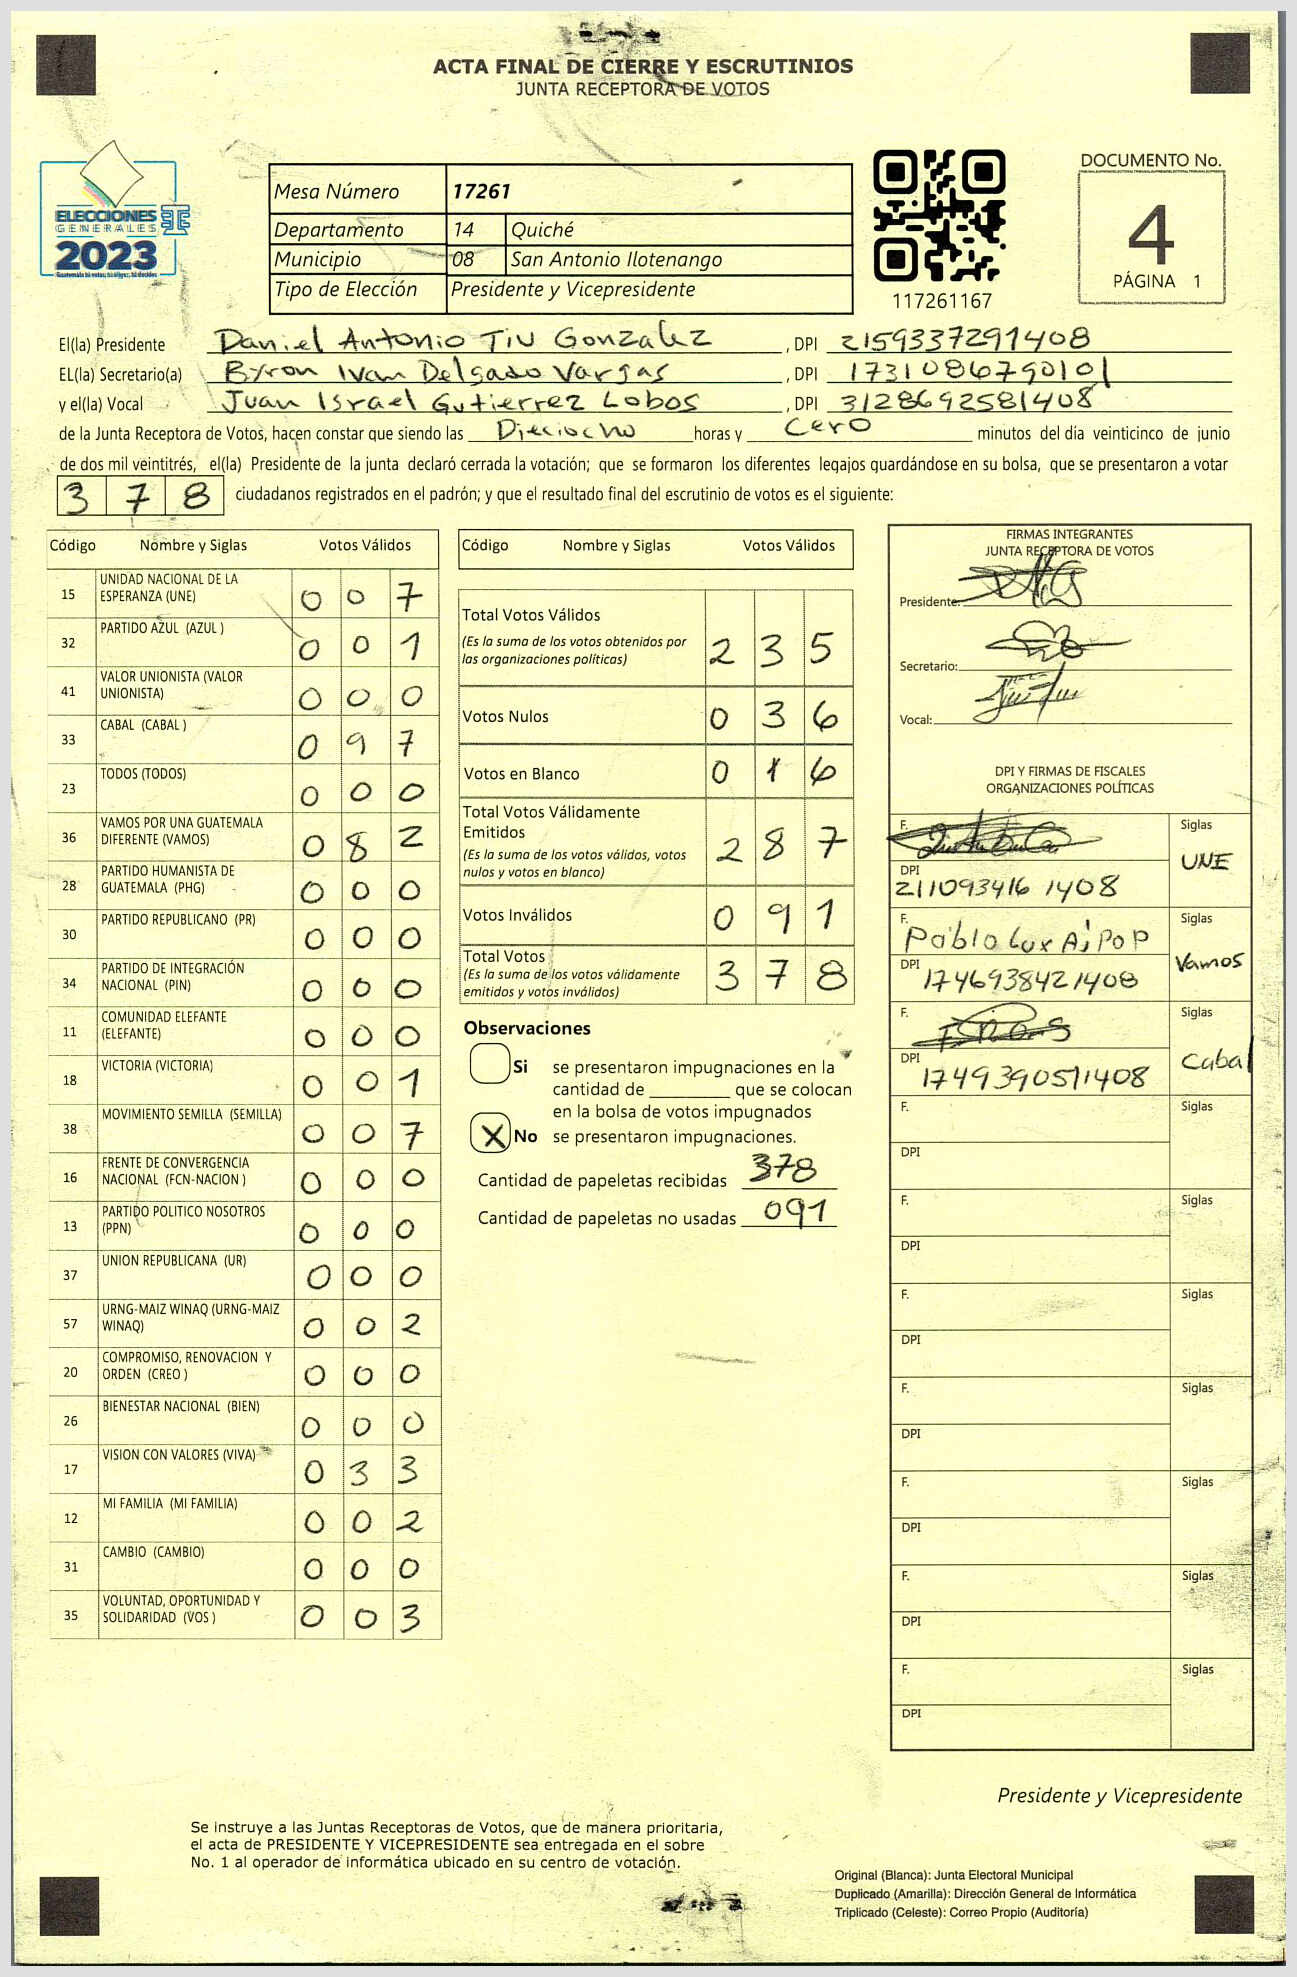 ACTA FINAL DE CIERRE Y ESCRUTINIOS
JUNTA RECEPTORA DE VOTOS
ELECCIONES
GENERALES
2023
Mesa Número 17261
Departamento 14 Quiché
Municipio 08 San Antonio Ilotenango
Tipo de Elección Presidente y Vicepresidente
117261167
DOCUMENTO No.
4
PÁGINA 1
El(la) Presidente Daniel Antonio Tiu Gonzalez, DPI 2159337291408
EL(la) Secretario(a) Byron Ivan Delgado Vargas, DPI 1731086790101
y el(la) Vocal Juan Israel Gutierrez Lobos, DPI 3128692581408
de la Junta Receptora de Votos, hacen constar que siendo las Dieciocho horas y cero minutos del día veinticinco de junio
de dos mil veintitrés, el(la) Presidente de la junta declaró cerrada la votación; que se formaron los diferentes legajos guardándose en su bolsa, que se presentaron a votar
3 7 8 ciudadanos registrados en el padrón; y que el resultado final del escrutinio de votos es el siguiente:
Código Nombre y Siglas Votos Válidos
15 UNIDAD NACIONAL DE LA
ESPERANZA (UNE) 0 0 7
32 PARTIDO AZUL (AZUL ) 0 0 1
41 VALOR UNIONISTA (VALOR
UNIONISTA) 0 0 0
33 CABAL (CABAL ) 0 9 7
23 TODOS (TODOS) 0 0 0
36 VAMOS POR UNA GUATEMALA
DIFERENTE (VAMOS) 0 8 2
28 PARTIDO HUMANISTA DE
GUATEMALA (PHG) 0 0 0
30 PARTIDO REPUBLICANO (PR) 0 0 0
34 PARTIDO DE INTEGRACIÓN
NACIONAL (PIN) 0 0 0
11 COMUNIDAD ELEFANTE
(ELEFANTE) 0 0 0
18 VICTORIA (VICTORIA) 0 0 1
38 MOVIMIENTO SEMILLA (SEMILLA) 0 0 7
16 FRENTE DE CONVERGENCIA
NACIONAL (FCN-NACION ) 0 0 0
13 PARTIDO POLITICO NOSOTROS
(PPN) 0 0 0
37 UNION REPUBLICANA (UR) 0 0 0
57 URNG-MAIZ WINAQ (URNG-MAIZ
WINAQ) 0 0 2
20 COMPROMISO, RENOVACION Y
ORDEN (CREO ) 0 0 0
26 BIENESTAR NACIONAL (BIEN) 0 0 0
17 VISION CON VALORES (VIVA) 0 3 3
12 MI FAMILIA (MI FAMILIA) 0 0 2
31 CAMBIO (CAMBIO) 0 0 0
35 VOLUNTAD, OPORTUNIDAD Y
SOLIDARIDAD (VOS ) 0 0 3
Código Nombre y Siglas Votos Válidos
Total Votos Válidos
(Es la suma de los votos obtenidos por
las organizaciones políticas) 2 3 5
Votos Nulos 0 3 6
Votos en Blanco 0 1 6
Total Votos Válidamente
Emitidos
(Es la suma de los votos válidos, votos
nulos y votos en blanco) 2 8 7
Votos Inválidos 0 9 1
Total Votos
(Es la suma de los votos válidamente
emitidos y votos inválidos) 3 7 8
Observaciones
Si se presentaron impugnaciones en la
cantidad de ________ que se colocan
en la bolsa de votos impugnados
X No se presentaron impugnaciones.
Cantidad de papeletas recibidas 378
Cantidad de papeletas no usadas 091
FIRMAS INTEGRANTES
JUNTA RECEPTORA DE VOTOS
Presidente:
Secretario:
Vocal:
DPI Y FIRMAS DE FISCALES
ORGANIZACIONES POLÍTICAS
F. Siglas
UNE
DPI
211093416 1408
F. Pablo Lux Ajpop Siglas
Vamos
DPI
1746938421408
F. Siglas
Cabal
DPI
1749390511408
F. Siglas
DPI
F. Siglas
DPI
F. Siglas
DPI
F. Siglas
DPI
F. Siglas
DPI
F. Siglas
DPI
F. Siglas
DPI
Presidente y Vicepresidente
Se instruye a las Juntas Receptoras de Votos, que de manera prioritaria,
el acta de PRESIDENTE Y VICEPRESIDENTE sea entregada en el sobre
No. 1 al operador de informática ubicado en su centro de votación.
Original (Blanca): Junta Electoral Municipal
Duplicado (Amarilla): Dirección General de Informática
Triplicado (Celeste): Correo Propio (Auditoría)